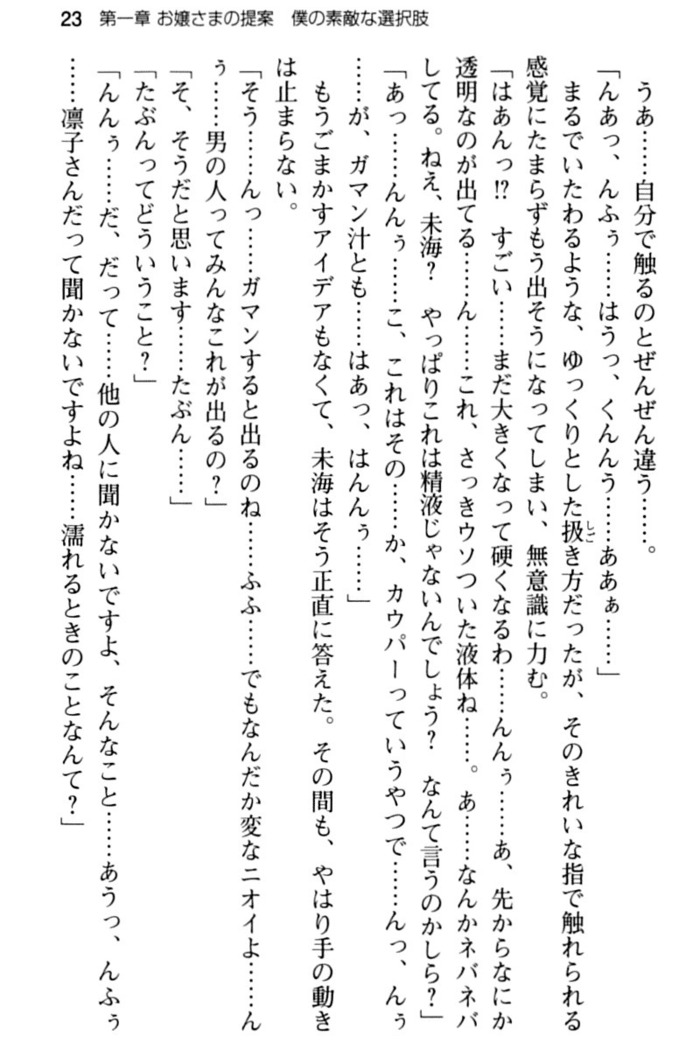 23 第一章 お嬢さまの提案 僕の素敵な選択肢
うあ……自分で触るのとぜんぜん違う……。
「んあっ、んふぅ……はうっ、くんんう……ああぁ……」
まるでいたわるような、ゆっくりとした扱き方だったが、そのきれいな指で触れられる
感覚にたまらずもう出そうになってしまい、無意識に力む。
「はあんっ!? すごい……まだ大きくなって硬くなるわ……んんぅ……あ、先からなにか
透明なのが出てる……ん……これ、さっきウソついた液体ね……。あ……なんかネバネバ
してる。ねえ、未海? やっぱりこれは精液じゃないんでしょう? なんて言うのかしら?」
「あっ……んんぅ……こ、これはその……か、カウパーっていうやつで……んっ、んぅ
……が、ガマン汁とも……はあっ、はんんぅ……」
もうごまかすアイデアもなくて、未海はそう正直に答えた。その間も、やはり手の動き
は止まらない。
「そう……んっ……ガマンすると出るのね……ふふ……でもなんだか変なニオイよ……ん
ぅ……男の人ってみんなこれが出るの?」
「そ、そうだと思います……たぶん……」
「たぶんってどういうこと?」
「んんぅ……だ、だって……他の人に聞かないですよ、そんなこと……あうっ、んふぅ
……凛子さんだって聞かないですよね……濡れるときのことなんて?」